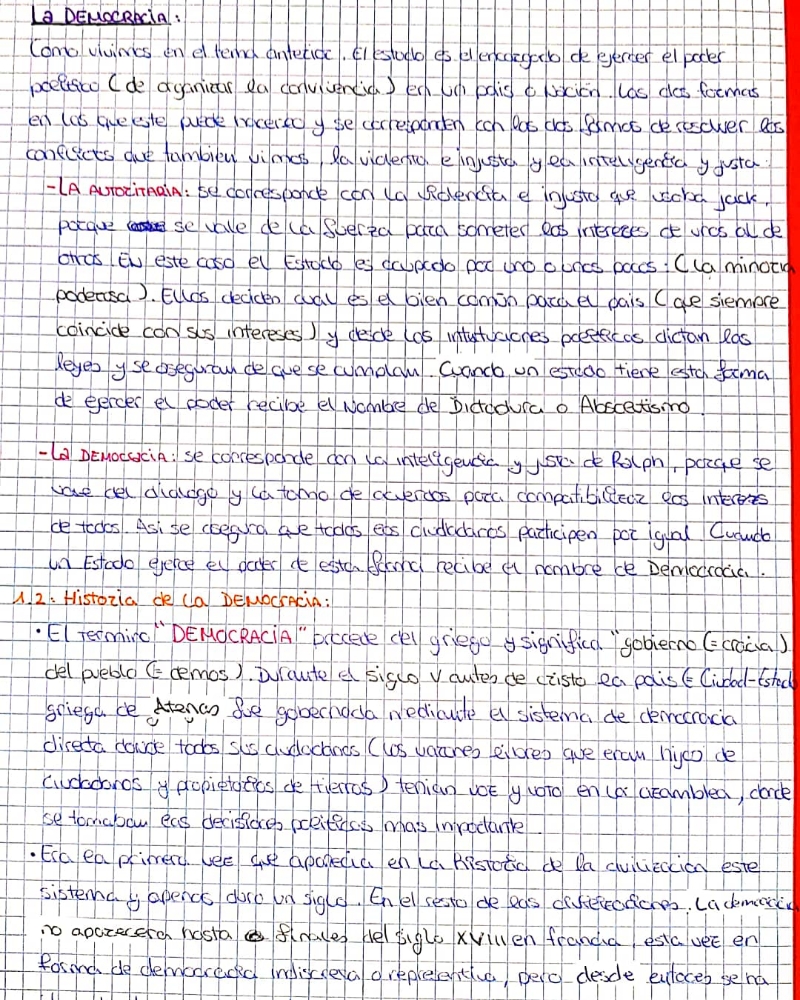 La DEMOCRACIA:
Como vivimos en el tema anterior. El estado es el encargado de ejercer el poder
político (de organizar la convivencia) en un pais o Nación. Las dos formas
en las que este puede hacerlo y se corresponden con las dos formas de resolver los
conflictos que tambien vimos, la violenta e injusta y la inteligencia y justa.
- LA AUTORITARIA: se corresponde con la violencia e injusta que usaba jack,
porque se vale de la fuerza para someter los intereses de unos al de
otros. En este caso el Estado es ocupado por uno o unos pocos: (la minoria
poderosa). Ellos deciden cual es el bien común para el pais (que siempre
coincide con sus intereses) y desde las intutuciones políticas dictan las
leyes y se aseguran de que se cumplan. Cuando un estado tiene esta forma
de ejercer el poder recibe el Nombre de Dictadura o Absoutismo.
- La DEMOCRCIA: se corresponde con la inteligencia y justa de Ralph, porque se
vale del dialogo y la toma de acuerdos para compatibilizar los intereses
de todos. Asi se asegura que todos los ciudadanos participen por igual Cuando
un Estado ejerce el poder de esta forma recibe el nombre de Democracia.
1.2. Historia de la DEMOCRACIA:
• El Termino "DEMOCRACIA" procede del griego y significa "gobierno (=cracia)
del pueblo (= demos). Durante el siglo V antes de cristo la polis (= Ciudad-Estad
griega de Atenas fue gobernada mediante el sistema de democracia
directa donde todos sus ciudadanos (los varones libres que eran hijos de
ciudadanos y propietarios de tierras) tenian voz y voto en la asamblea, donde
se tomaban las decisiones politicas mas importante.
• Era la primera vez que aparecia en la historia de la civilizacion este
sistema y apenas duro un siglo. En el resto de las civilizaciones. La democracia
no aparecera hasta finales del siglo XVIII en francia, esta vez en
forma de democracia indirecta o representiva, pero desde entoces se ha